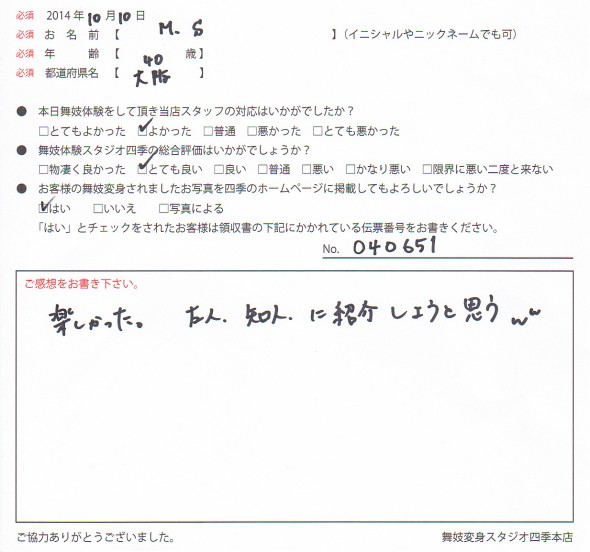 必須 2014年10月10日
必須 お名前【 M.S 】(イニシャルやニックネームでも可)
必須 年齢【 40 歳】
必須 都道府県名【 大阪 】
● 本日舞妓体験をして頂き当店スタッフの対応はいかがでしたか?
□とてもよかった ☑よかった □普通 □悪かった □とても悪かった
● 舞妓体験スタジオ四季の総合評価はいかがでしょうか?
□物凄く良かった ☑とても良い □良い □普通 □悪い □かなり悪い □限界に悪い二度と来ない
● お客様の舞妓変身されましたお写真を四季のホームページに掲載してもよろしいでしょうか?
☑はい □いいえ □写真による
「はい」とチェックをされたお客様は領収書の下記にかかれている伝票番号をお書きください。
No. 040651
ご感想をお書き下さい。
楽しかった。 友人.知人.に紹介しようと思うww
ご協力ありがとうございました。
舞妓変身スタジオ四季本店